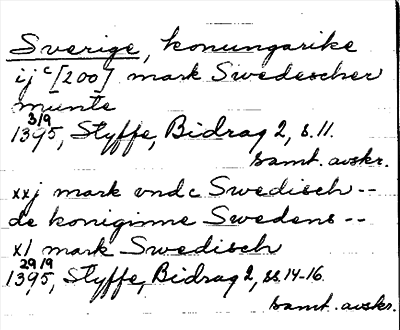 Sverige, konungarike
ijc [200] mark Swedescher
munte
3/9
1395, Styffe, Bidrag 2, s. 11.
samt. avskr.
xxj mark vnde Swedisch --
de koniginne Swedens --
xl mark Swedisch
29/9
1395, Styffe, Bidrag 2, ss. 14-16.
samt. avskr.